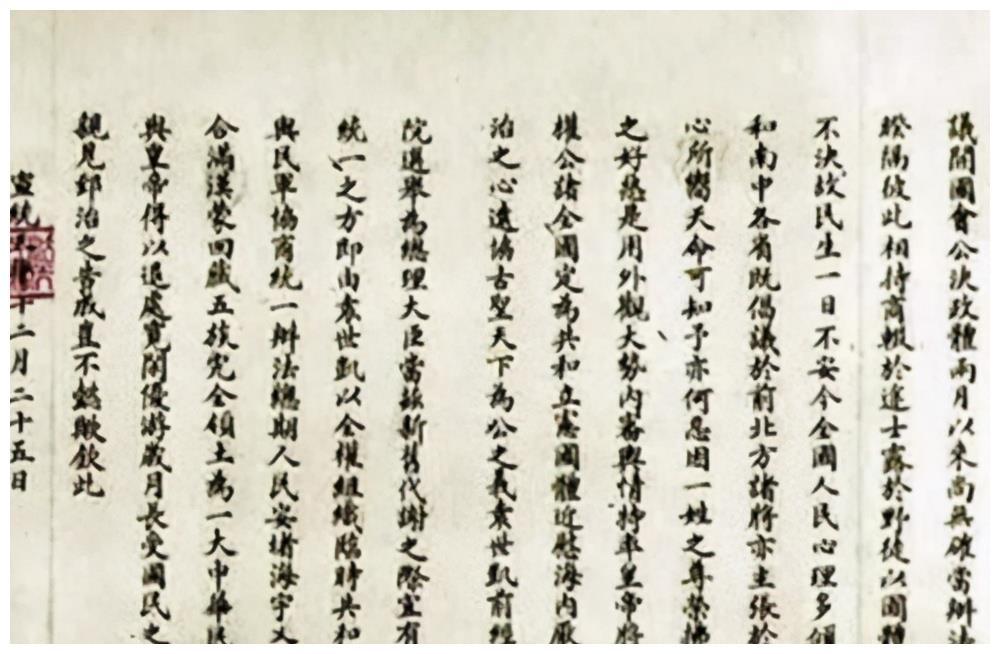 議開國會公決政體兩月以來尚無確當辦法
睽隔彼此相持商輟於途士露於野徒以國體
不決故民生一日不安今全國人民心理多傾
和南中各省既倡議於前北方諸將亦主張於
心所嚮天命可知予亦何忍因一姓之尊榮拂
之好惡是用外觀大勢內審輿情特率皇帝將
權公諸全國定為共和立憲國體近慰海內厭
治之心遠協古聖天下為公之義袁世凱前經
院選舉為總理大臣當茲新舊代謝之際宜有
統一之方即由袁世凱以全權組織臨時共和
與民軍協商統一辦法總期人民安堵海宇乂
合滿漢蒙回藏五族完全領土為一大中華民
與皇帝得以退處寬閑優游歲月長受國民之
親見郅治之告成豈不懿歟欽此
宣統 十二月二十五日